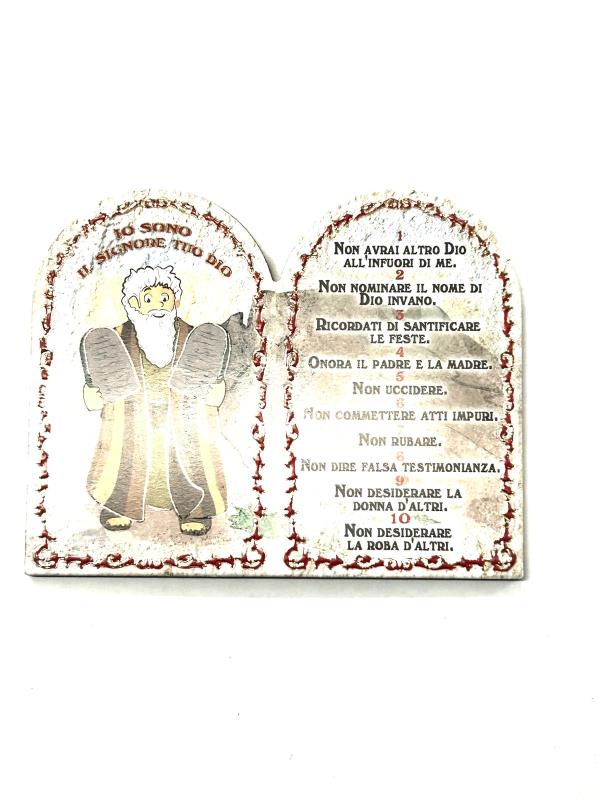 IO SONO
IL SIGNORE TUO DIO
1
NON AVRAI ALTRO DIO
ALL'INFUORI DI ME.
2
NON NOMINARE IL NOME DI
DIO INVANO.
3
RICORDATI DI SANTIFICARE
LE FESTE.
4
ONORA IL PADRE E LA MADRE.
5
NON UCCIDERE.
6
NON COMMETTERE ATTI IMPURI.
7
NON RUBARE.
8
NON DIRE FALSA TESTIMONIANZA.
9
NON DESIDERARE LA
DONNA D'ALTRI.
10
NON DESIDERARE
LA ROBA D'ALTRI.